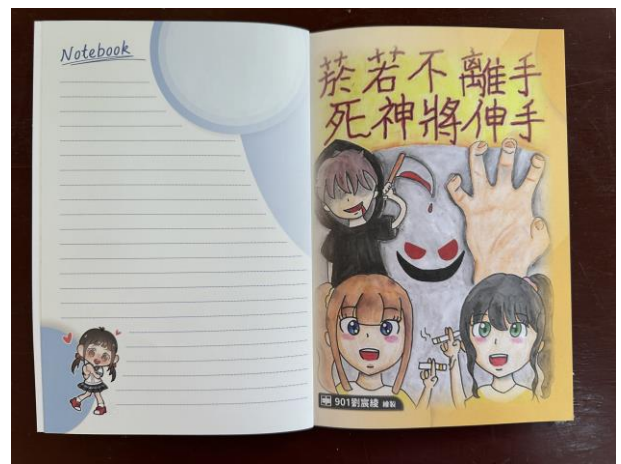 Notebook
菸若不離手
死神將伸手
901劉宸綾 繪製